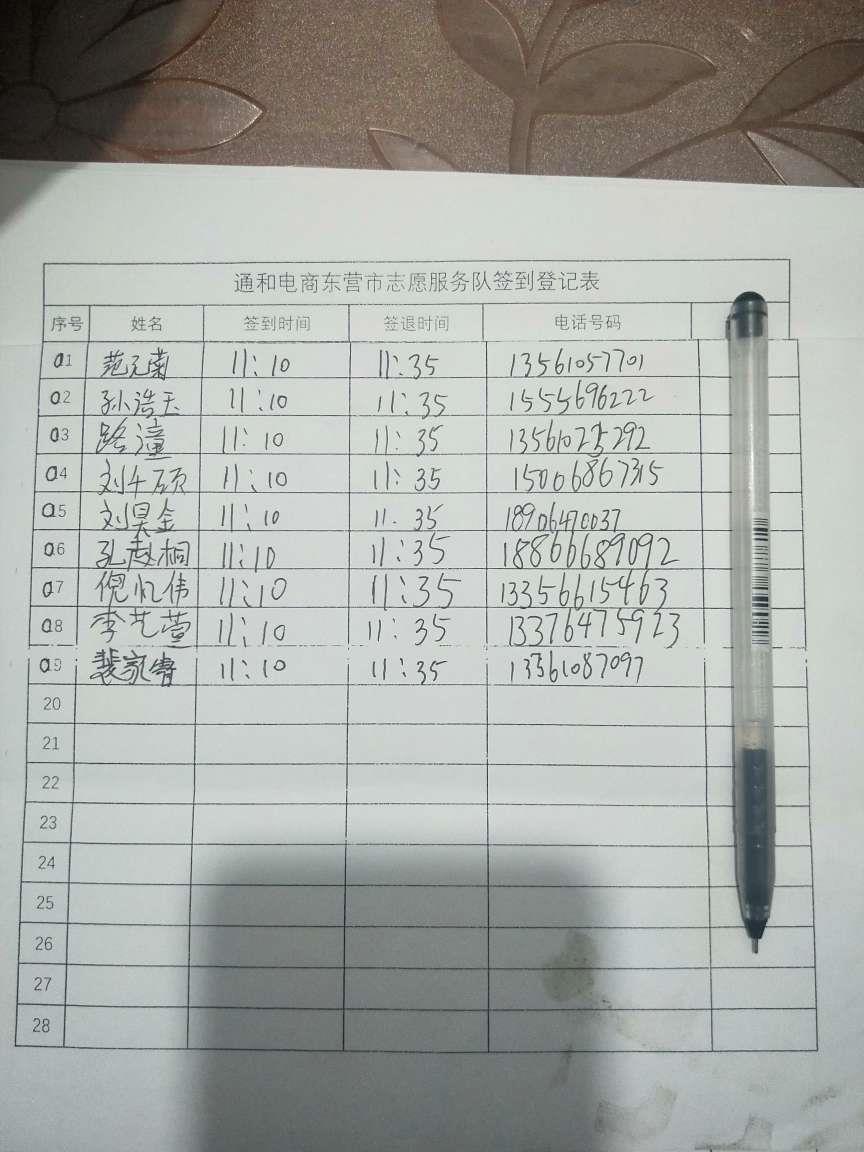 通和电商东营市志愿服务队签到登记表
序号 姓名 签到时间 签退时间 电话号码
01 范元菊 11:10 11:35 13561057701
02 孙浩玉 11:10 11:35 15555696222
03 路潼 11:10 11:35
04 刘千硕 11:10 11:35 15066867315
05 刘昊金 11:10 11.35 18906470037
06 孔赵桐 11:10 11:35 18866689092
07 倪忆伟 11:10 11:35 13356615463
08 李艺萱 11:10 11:35 13376475923
09 裴家 11:10 11:35 13361087097
20
21
22
23
24
25
26
27
28